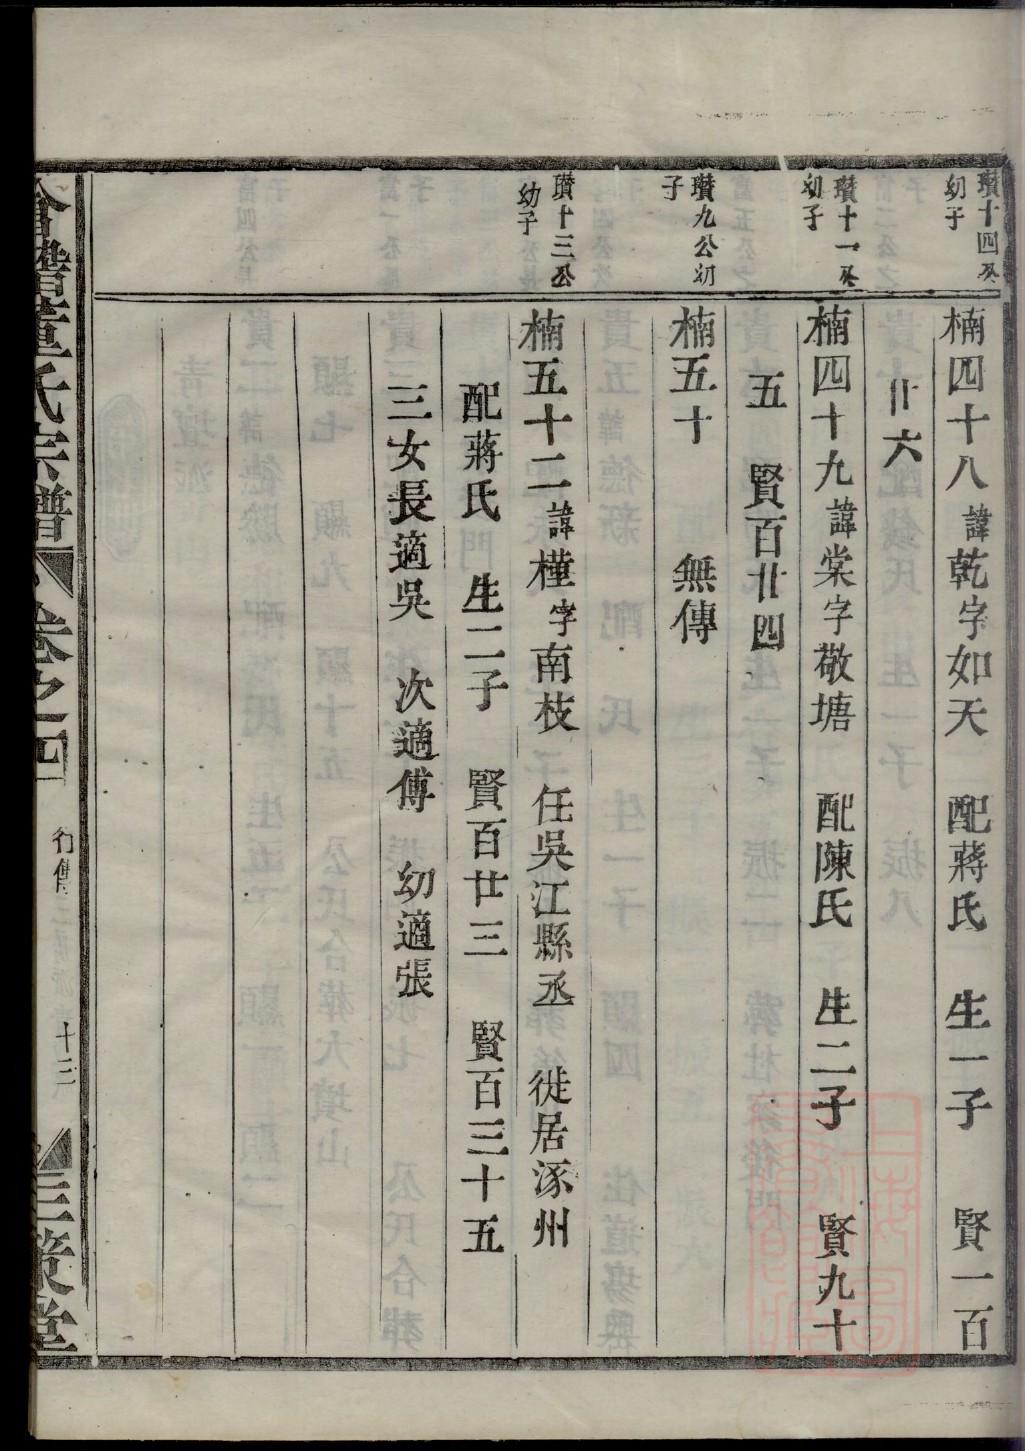 瓚十四公
幼子
楠四十八諱乾字如天 配蔣氏 生一子 賢一百
廿六
瓚十一公
幼子
楠四十九諱棠字敬塘 配陳氏 生二子 賢九十
五 賢百廿四
瓚九公初
子
楠五十 無傳
瓚十三公
幼子
楠五十二諱橦字南枝 任吳江縣丞 徙居涿州
配蔣氏 生二子 賢百廿三 賢百三十五
三女長適吳 次適傅 幼適張
會稽董氏宗譜 卷之四 行傳 十三 三策堂